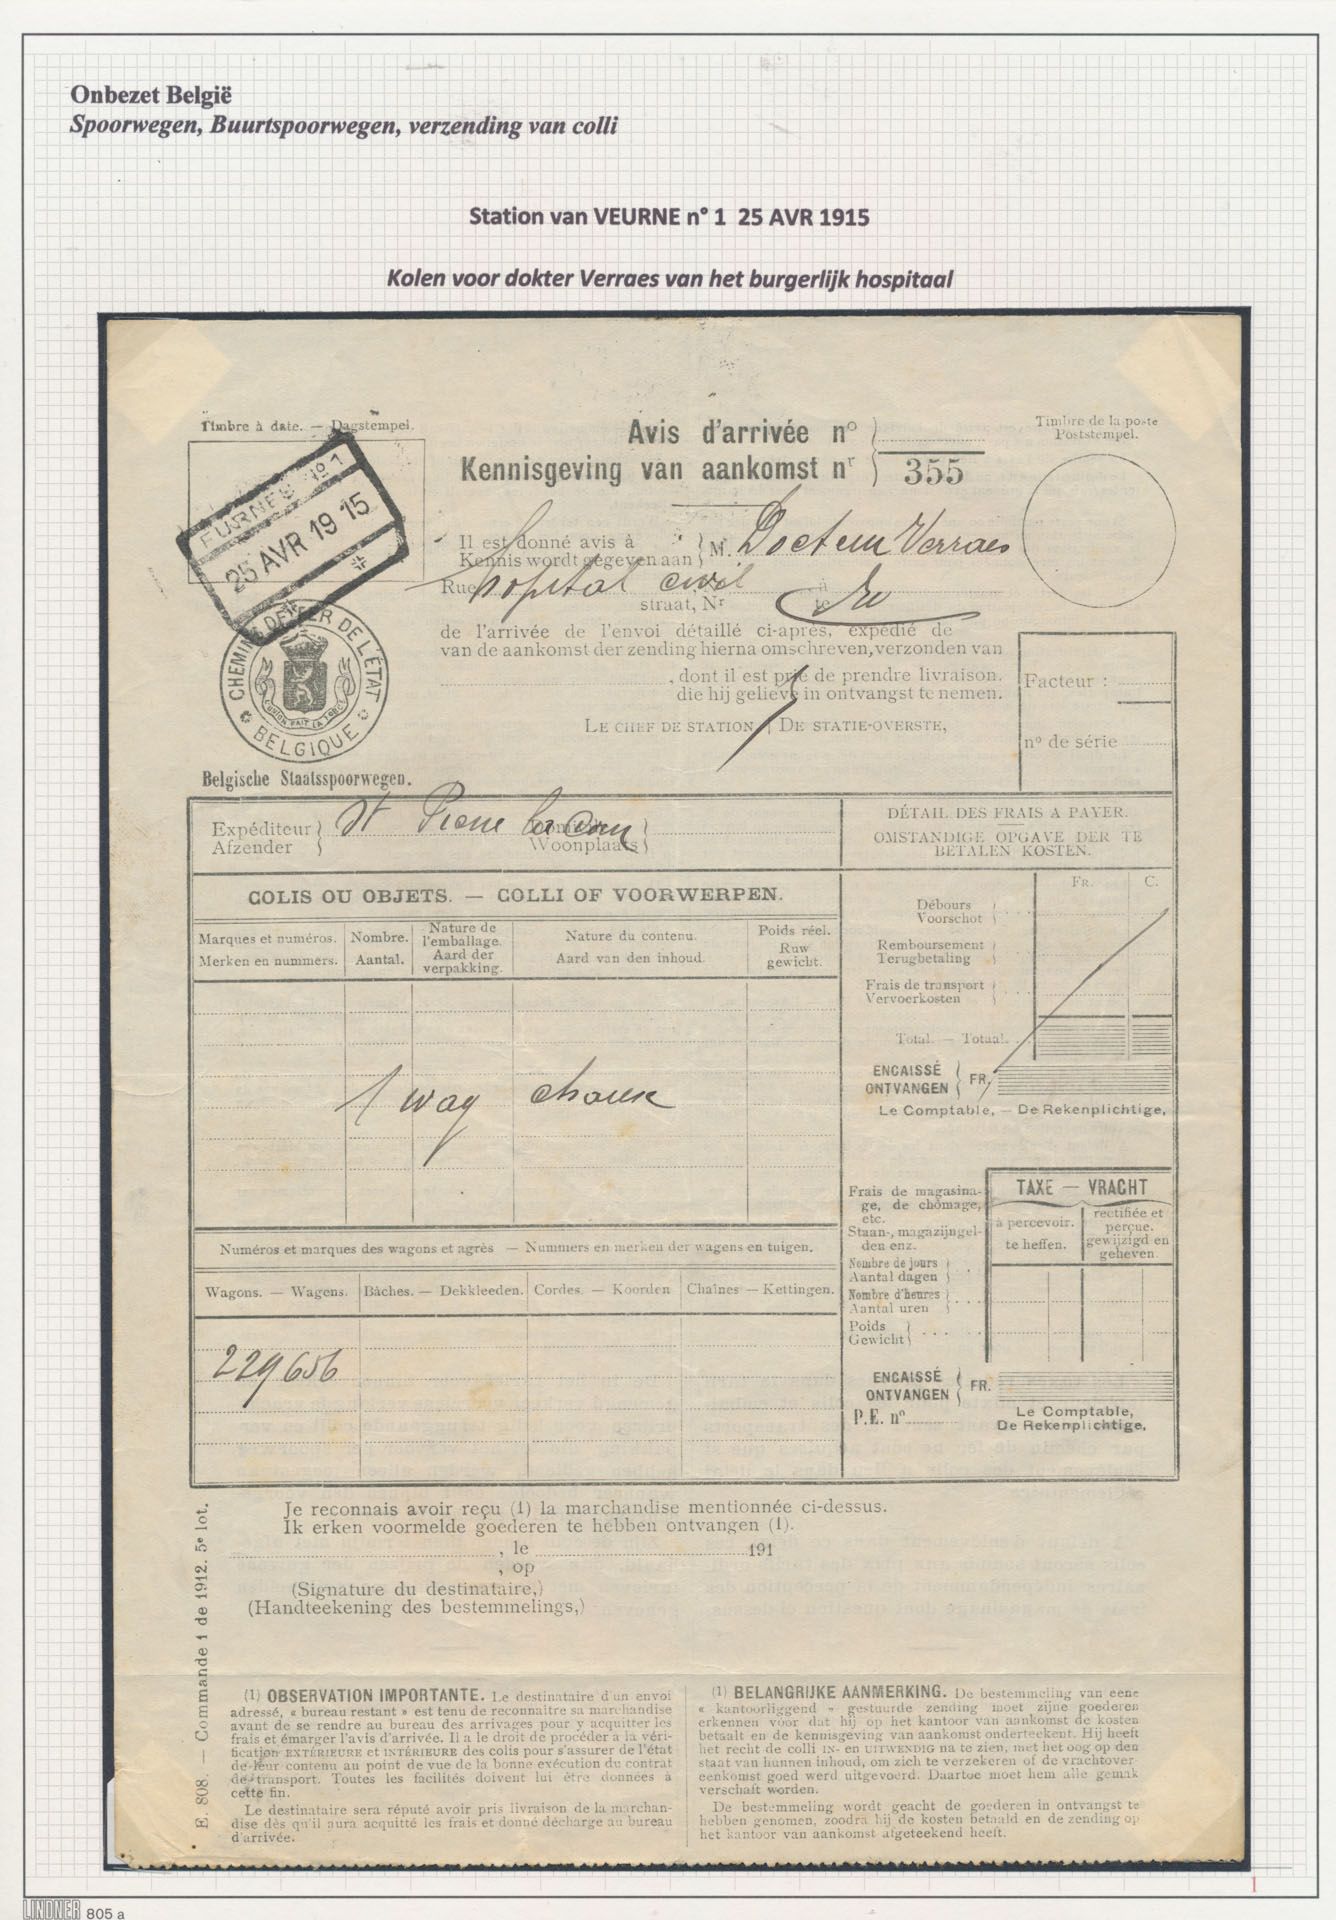 Onbezet België
Spoorwegen, Buurtspoorwegen, verzending van colli
Station van VEURNE n° 1 25 AVR 1915
Kolen voor dokter Verraes van het burgerlijk hospitaal
Timbre à date. — Dagstempel.
FURNES No 1
25 AVR 1915
CHEMINS DE FER DE L'ÉTAT
L'UNION FAIT LA FORCE
BELGIQUE
Belgische Staatsspoorwegen.
Avis d'arrivée no
Kennisgeving van aankomst nr
355
Timbre de la poste
Poststempel.
Il est donné avis à
Kennis wordt gegeven aan
M. Docteur Verraes
Rue hopital civil à
straat, Nr te
de l'arrivée de l'envoi détaillé ci-après, expédié de
van de aankomst der zending hierna omschreven, verzonden van
, dont il est prié de prendre livraison.
die hij gelieve in ontvangst te nemen.
LE CHEF DE STATION, DE STATIE-OVERSTE,
Facteur :
no de série
Expéditeur
Afzender
St Pierre
Woonplaats
DÉTAIL DES FRAIS A PAYER.
OMSTANDIGE OPGAVE DER TE
BETALEN KOSTEN.
COLIS OU OBJETS. — COLLI OF VOORWERPEN.
Marques et numéros.
Merken en nummers.
Nombre.
Aantal.
Nature de
l'emballage.
Aard der
verpakking.
Nature du contenu.
Aard van den inhoud.
Poids réel.
Ruw
gewicht.
FR. C.
Débours
Voorschot
Remboursement
Terugbetaling
Frais de transport
Vervoerkosten
Total. — Totaal.
ENCAISSÉ
ONTVANGEN
FR.
Le Comptable, — De Rekenplichtige,
1 wag
Frais de magasina-
ge, de chômage,
etc.
Staan-, magazijngel-
den enz.
Nombre de jours
Aantal dagen
Nombre d'heures
Aantal uren
Poids
Gewicht
TAXE — VRACHT
à percevoir.
te heffen.
rectifiée et
perçue.
gewijzigd en
geheven.
ENCAISSÉ
ONTVANGEN
FR.
P.E. no
Le Comptable,
De Rekenplichtige,
Numéros et marques des wagons et agrès — Nummers en merken der wagens en tuigen.
Wagons. — Wagens. Bâches. — Dekkleeden. Cordes. — Koorden Chaînes — Kettingen.
229656
Je reconnais avoir reçu (1) la marchandise mentionnée ci-dessus.
Ik erken voormelde goederen te hebben ontvangen (1).
, le 191
, op
(Signature du destinataire,)
(Handteekening des bestemmelings,)
E. 808. — Commande 1 de 1912. 5e lot.
(1) OBSERVATION IMPORTANTE. Le destinataire d'un envoi
adressé, « bureau restant » est tenu de reconnaitre sa marchandise
avant de se rendre au bureau des arrivages pour y acquitter les
frais et émarger l'avis d'arrivée. Il a le droit de procéder à la véri-
fication EXTÉRIEURE et INTÉRIEURE des colis pour s'assurer de l'état
de leur contenu au point de vue de la bonne exécution du contrat
de transport. Toutes les facilités doivent lui être données à
cette fin.
Le destinataire sera réputé avoir pris livraison de la marchan-
dise dès qu'il aura acquitté les frais et donné décharge au bureau
d'arrivée.
(1) BELANGRIJKE AANMERKING. De bestemmeling van eene
« kantoorliggend » gestuurde zending moet zijne goederen
erkennen vóór dat hij op het kantoor van aankomst de kosten
betaalt en de kennisgeving van aankomst onderteekent. Hij heeft
het recht de colli IN- en UITWENDIG na te zien, met het oog op den
staat van hunnen inhoud, om zich te verzekeren of de vrachtover-
eenkomst goed werd uitgevoerd. Daartoe moet hem alle gemak
verschaft worden.
De bestemmeling wordt geacht de goederen in ontvangst te
hebben genomen, zoodra hij de kosten betaald en de zending op
het kantoor van aankomst afgeteekend heeft.
1
LINDNER 805 a